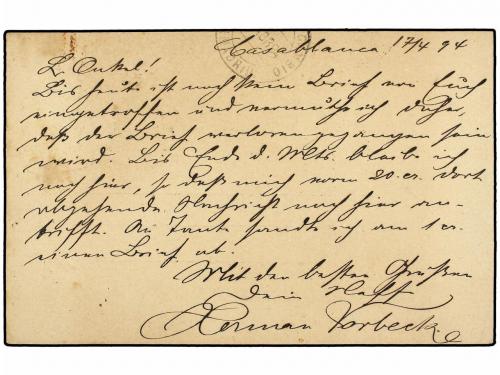 Casablanca 17/4 94
L. Onkel!
Bis heute ist noch kein Brief von Euch
eingetroffen und vermuthe ich daher
daß der Brief verloren gegangen sein
wird. Bis Ende d. Mts. bleibe ich
noch hier, so daß mich vom 20 cr. dort
abgehende Nachricht noch hier an-
trifft. An Tante sandte ich am 1 cr.
einen Brief ab.
Mit den besten Grüßen
Dein Neff
Herman Vorbeck